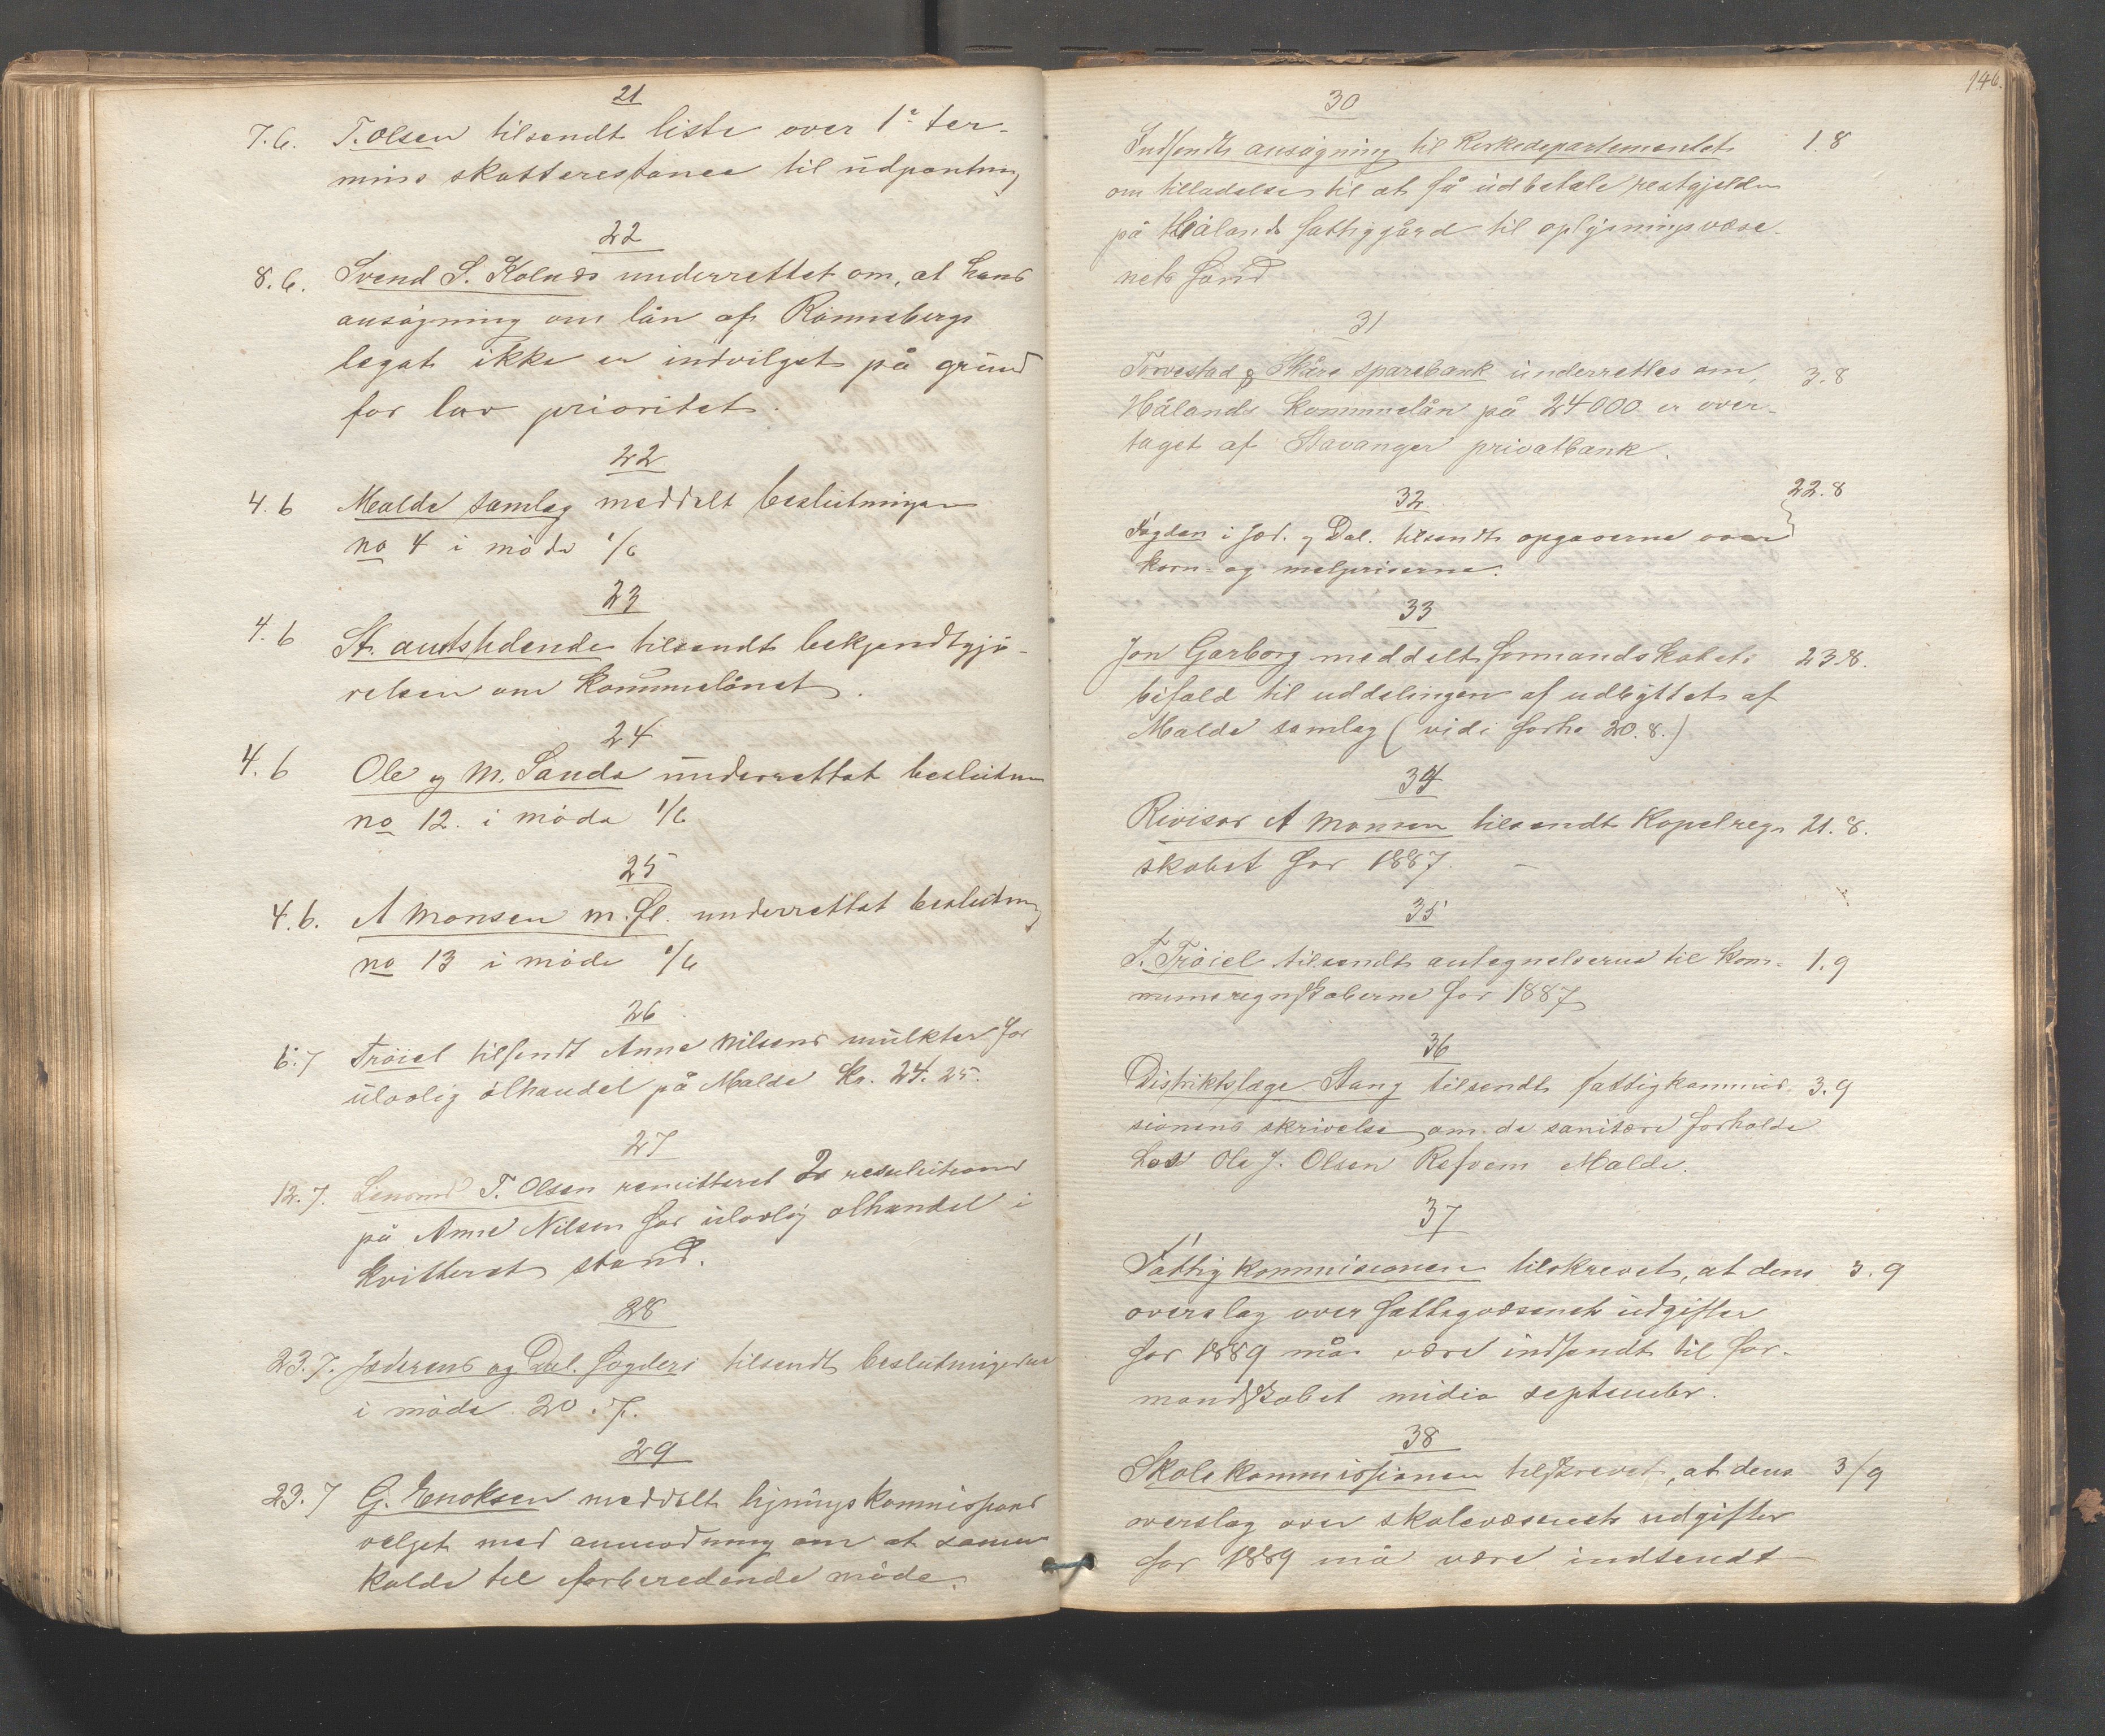 21
7.6. T. Olsen tilsendt liste over 1ste ter-
mins skatterestance til udpantning
22
8.6. Svend S. Kolnæs underrettet om, at hans
ansøgning om lån af Rønnebergs
legat ikke er indvilget på grund
for lav prioritet.
22
4.6 Malde samlag meddelt beslutningen
no 4 i møde 1/6
23
4.6 St. amtstidende tilsendt bekjendtgjø-
relsen om kommunelånet.
24
4.6 Ole og M. Sande underrettet beslutn
no 12. i møde 1/6
25
4.6. A Monsen m. fl. underrettet beslutning
no 13 i møde 1/6
26
6.7 Trøiel tilsendt Anne Nilsens mulkter for
ulovlig ølhandel på Malde Kr. 24.25.
27
12.7. Lensmd T. Olsen remitteret 2 resolutioner
på Anne Nilsen for ulovlig ølhandel i
kvitteret stand.
28
23.7. Jæderens og Dal. fogderi tilsendt beslutningerne
i møde 20.7.
29
23.7 G. Enoksen meddelt ligningskommissions
valget med anmodning om at sammen
kalde til forberedende møde.
146.
30
Indsendt ansøgning til Kirkedepartementet 1.8
om tilladelse til at få udbetale restgjelden
på Hålands fattiggård til oplysningsvæse-
nets fond
31
Torvestad & Skåre sparebank underrettes om, 3.8
Hålands kommunelån på 24000 er over-
taget af Stavanger privatbank.
32 22.8
Fogden i Jæd. og Dal. tilsendt opgaverne over
korn- og melpriserne.
33
Jon Garborg meddelt formandskabets 23.8.
bifald til uddelingen af udbyttet af
Malde samlag (vide forhe 20.8.)
34
Revisor A Monsen tilsendt Kapelregn 21.8.
skabet for 1887. –
35
T. Trøiel tilsendt antegnelserne til kom- 1.9
muneregnskaberne for 1887
36
Distriktslæge Stang tilsendt fattigkommis- 3.9
sionens skrivelse om de sanitære forholde
hos Ole J. Olsen Refvem Malde.
37
Fattigkommisionen tilskrevet, at dens 3.9
overslag over fattigvæsenets udgifter
for 1889 må være indsendt til for-
mandskabet midio septembr.
38
Skolekommissionen tilskrevet, at dens 3/9
overslag over skolevæsenets udgifter
for 1889 må være indsendt